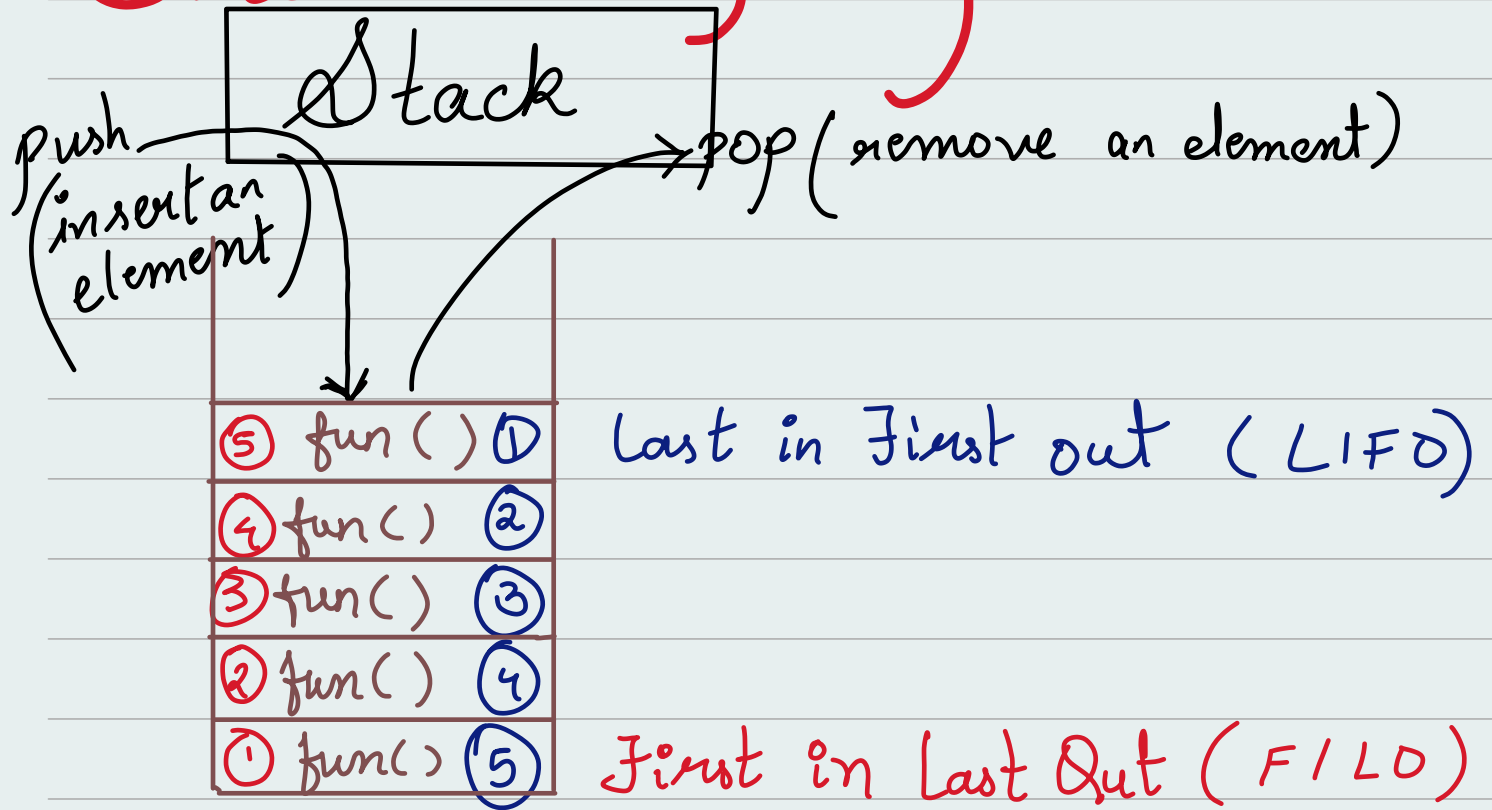 Stack
push
(insert an
element)
pop (remove an element)
5 fun() 1 Last in First out (LIFO)
4 fun() 2
3 fun() 3
2 fun() 4
1 fun() 5 First in Last Out (FILO)